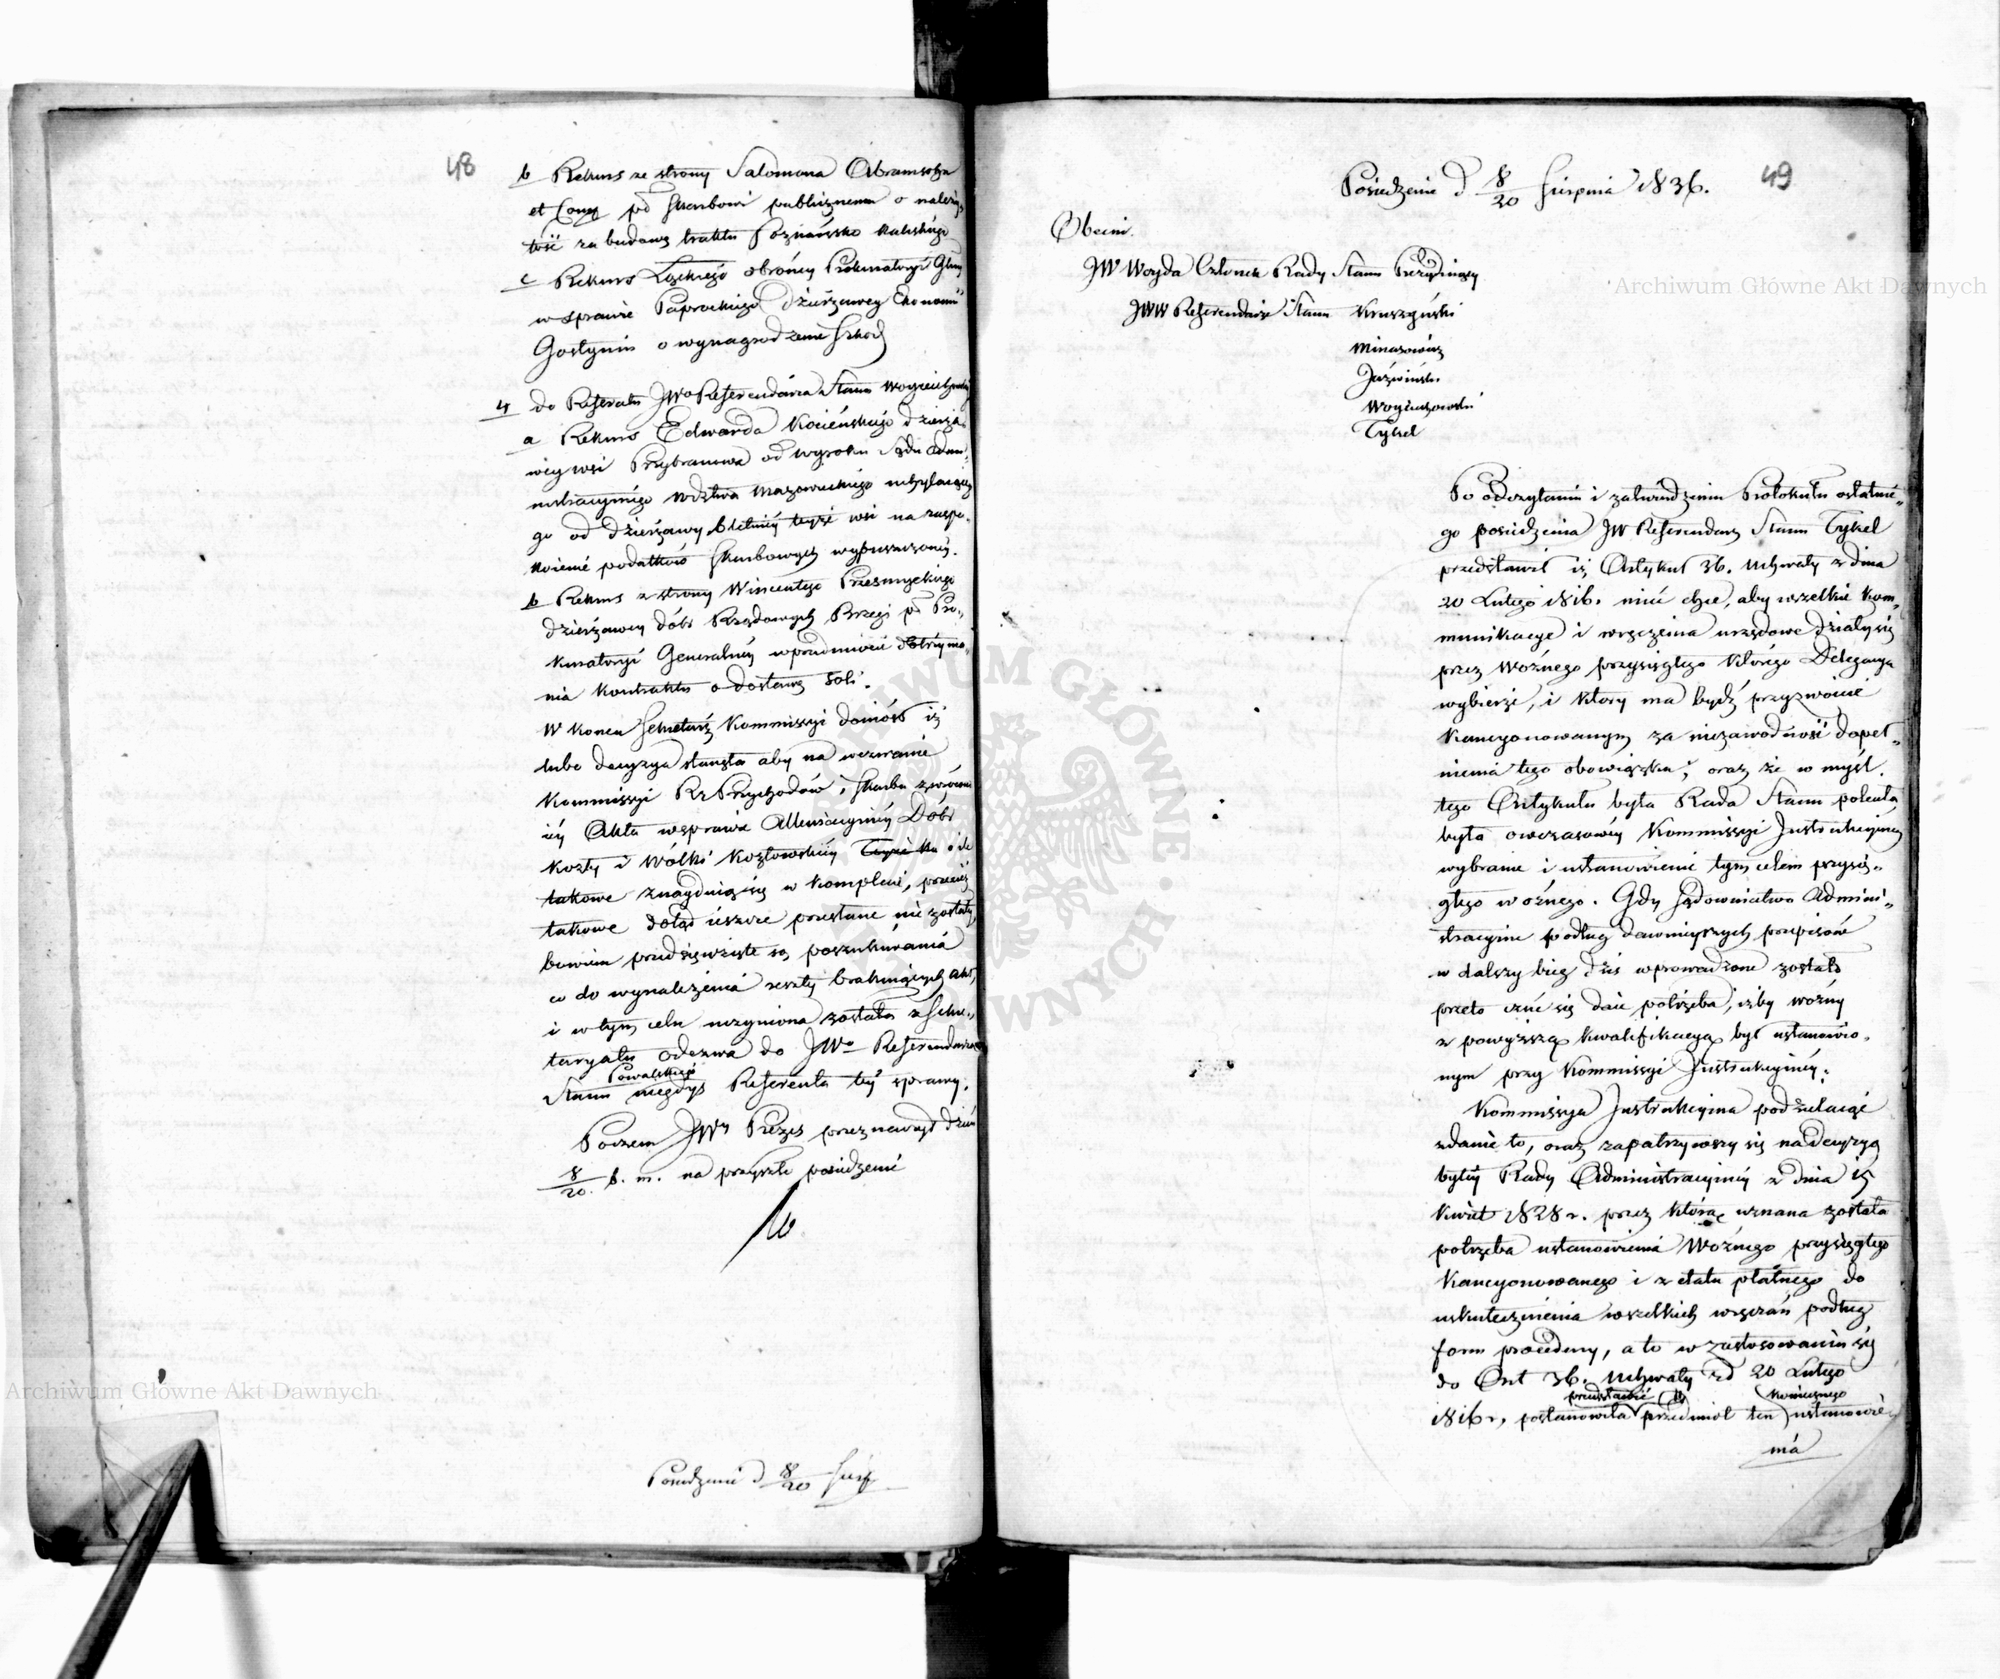 48
b Rekurs ze strony Salomona Abramsohn
et Comp pko Skarbowi publicznemu o należy-
tość za budowę traktu Poznańsko Kaliskiego
c Rekurs Łąckiego obrońcy Prokuratoryi Glney
w sprawie Paprockiego dzierżawcy Ekonomii
Gostynin o wynagrodzenie szkod
4 do Referatu JWo Referendarza Stanu Woyciechowski
a Rekurs Edwarda Kocieńskiego dzierża-
wcy wsi Przybranowa od wyroku Sądu Admi-
nistracyinego Wdztwa Mazowieckiego uchylaiące
go od dzierżawy letniey teyże wsi na zaspo-
koienie podatków skarbowych wypuszczoney.
b Rekurs z strony Wincentego Przesmyckiego
dzierżawcy dóbr Rządowych Brzegi pko Pro-
kuratoryi Generalney w przedmiocie dotrzyma-
nia kontraktu o dostawę soli.
W koncu Sekretarz Kommissyi doniósł iż
lubo decyzya stanęła aby na wezwanie
Kommissyi Rz Przychodów i Skarbu zwrócone
iey Akta w sprawie Allewiacyiney Dóbr
Kozły i Wólki Kozłowskiey o ile
takowe znayduią się w komplecie, przecież
takowe dotąd ieszcze przesłane nie zostały,
bowiem przedsięwzięte są poszukiwania
co do wynalezienia reszty brakuiących akt,
i w tym celu uczyniona została z Sekre-
taryatu odezwa do JWo Referendarza
Powalskiego
Stanu niegdyś Referenta tey sprawy.
Poczem JWy Prezes przeznaczył dzień
8/20 b. m. na przyszłe posiedzenie
Posiedzenie d 8/20 Sierp
49
Posiedzenie d 8/20 Sierpnia 1836.
Obecni.
JW Woyda Członek Rady Stanu Prezyduiący
JWW Referendarze Stanu Kruszyński
Minasowicz
Jaźwiński
Woyciechowski
Tykel
Po odczytaniu i zatwierdzeniu Protokułu ostatnie-
go posiedzenia JW Referendarz Stanu Tykel
przedstawił iż Artykuł 36. Uchwały z dnia
20 Lutego 1816. mieć chce, aby wszelkie kom-
munikacye i wręczenia urzędowe działy się
przez Woźnego przysięgłego którego Delegacya
wybierze, i który ma bydź przyzwoicie
kaucyonowanym za niezawodność dopeł-
nienia tego obowiązku; oraz że w myśl
tego Artykułu była Rada Stanu poleciła
była owczasowey Kommissyi Instrukcyiney
wybranie i ustanowienie tym celem przysię-
głego woźnego. Gdy sądownictwo Admini-
stracyine podług dawnieyszych przepisów
w dalszy bieg dziś wprowadzone zostało
przeto czuć się daie potrzeba, iżby woźny
z powyższą kwalifikacyą był ustanowio-
nym przy Kommissyi Instrukcyiney.
Kommissya Instrukcyina podzielaiąc
zdanie to, oraz zapatrzywszy się na decyzyą
byłey Rady Administracyiney z dnia 15
Kwiet 1828 r. przez którą uznana została
potrzeba ustanowienia Woźnego przysięgłego
kaucyonowanego i z etatu płatnego do
uskutecznienia wszelkich wręczań podług
form procedury, a to w zastosowaniu się
do Art 36. Uchwały zd 20 Lutego
przedstawić koniecznego
1816 r, postanowiła przedmiot ten ustanowie-
nia